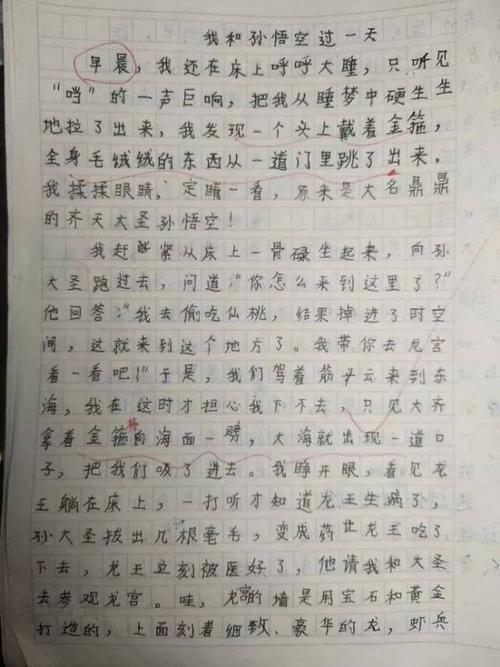 我和孙悟空过一天
早晨，我还在床上呼呼大睡，只听见
“咣”的一声巨响，把我从睡梦中硬生生
地拉了出来，我发现一个头上戴着金箍，
全身毛绒绒的东西从一道门里跳了出来，
我揉揉眼睛，定睛一看，原来是大名鼎鼎
的齐天大圣孙悟空！
我赶紧从床上一骨碌坐起来，向孙
大圣跑过去，问道：“你怎么来到这里了？”
他回答：“我去偷吃仙桃，结果掉进了时空
间，这就来到这个地方了。我带你去龙宫
看一看吧！”于是，我们驾着筋斗云来到东
海，我在这时才担心我下不去，只见大齐
拿着金箍棒向海面一劈，大海就出现一道口
子，把我们吸了进去。我睁开眼，看见龙
王躺在床上，一打听才知道龙王生病了，
孙大圣拔出几根毫毛，变成药让龙王吃了
下去，龙王立刻被医好了，他请我和大圣
去参观龙宫。哇，龙宫的墙是用宝石和黄金
打造的，上面刻着细致、豪华的龙，虾兵